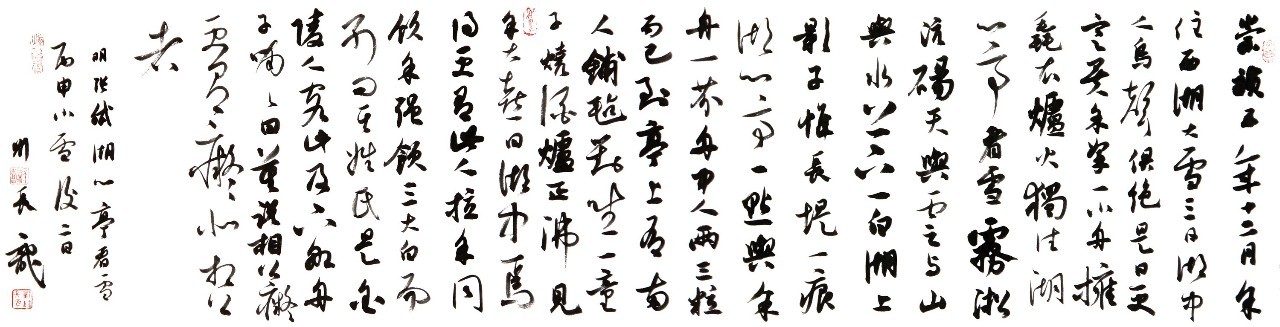 崇禎五年十二月余
住西湖大雪三日湖中
人鳥聲俱絕是日更
定矣余拏一小舟擁
毳衣爐火獨往湖
心亭看雪霧淞
沆碭天與雲與山
與水上下一白湖上
影子惟長堤一痕
湖心亭一點與余
舟一芥舟中人兩三粒
而已到亭上有兩
人鋪氈對坐一童
子燒酒爐正沸見
余大喜曰湖中焉
得更有此人拉余同
飲余強飲三大白而
別問其姓氏是金
陵人客此及下船舟
子喃喃曰莫說相公癡
更有癡似相公
者
明張岱湖心亭看雪
丙申小雪後二日